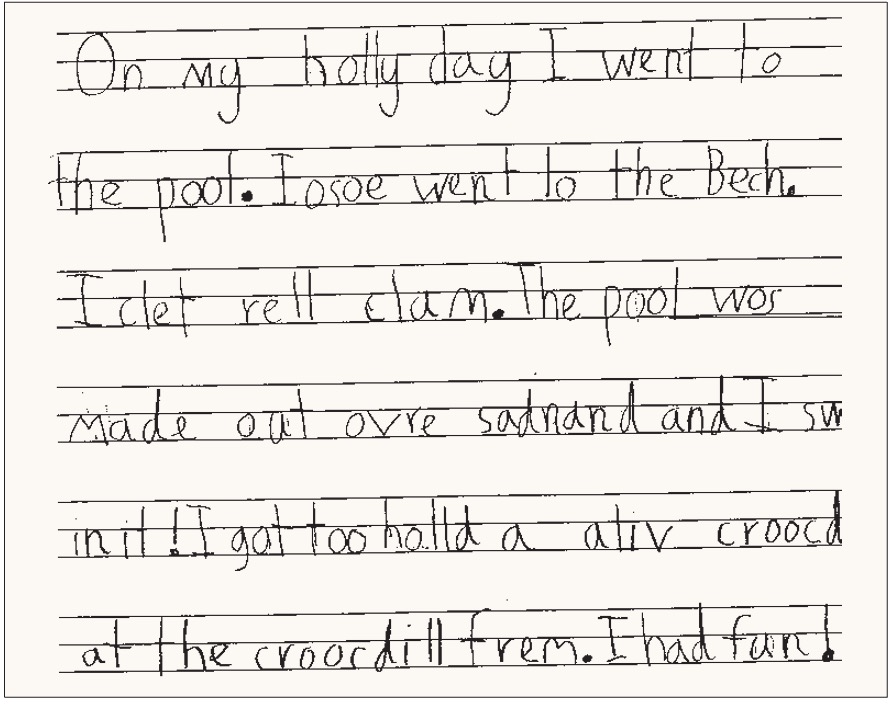 On my holly day I went to
the pool. I osoe went to the Bech.
I clet rell clam. The pool wos
made out ovre sadnand and I sw
in it! I got too holld a ativ croocd
at the croocdill frem. I had fun!